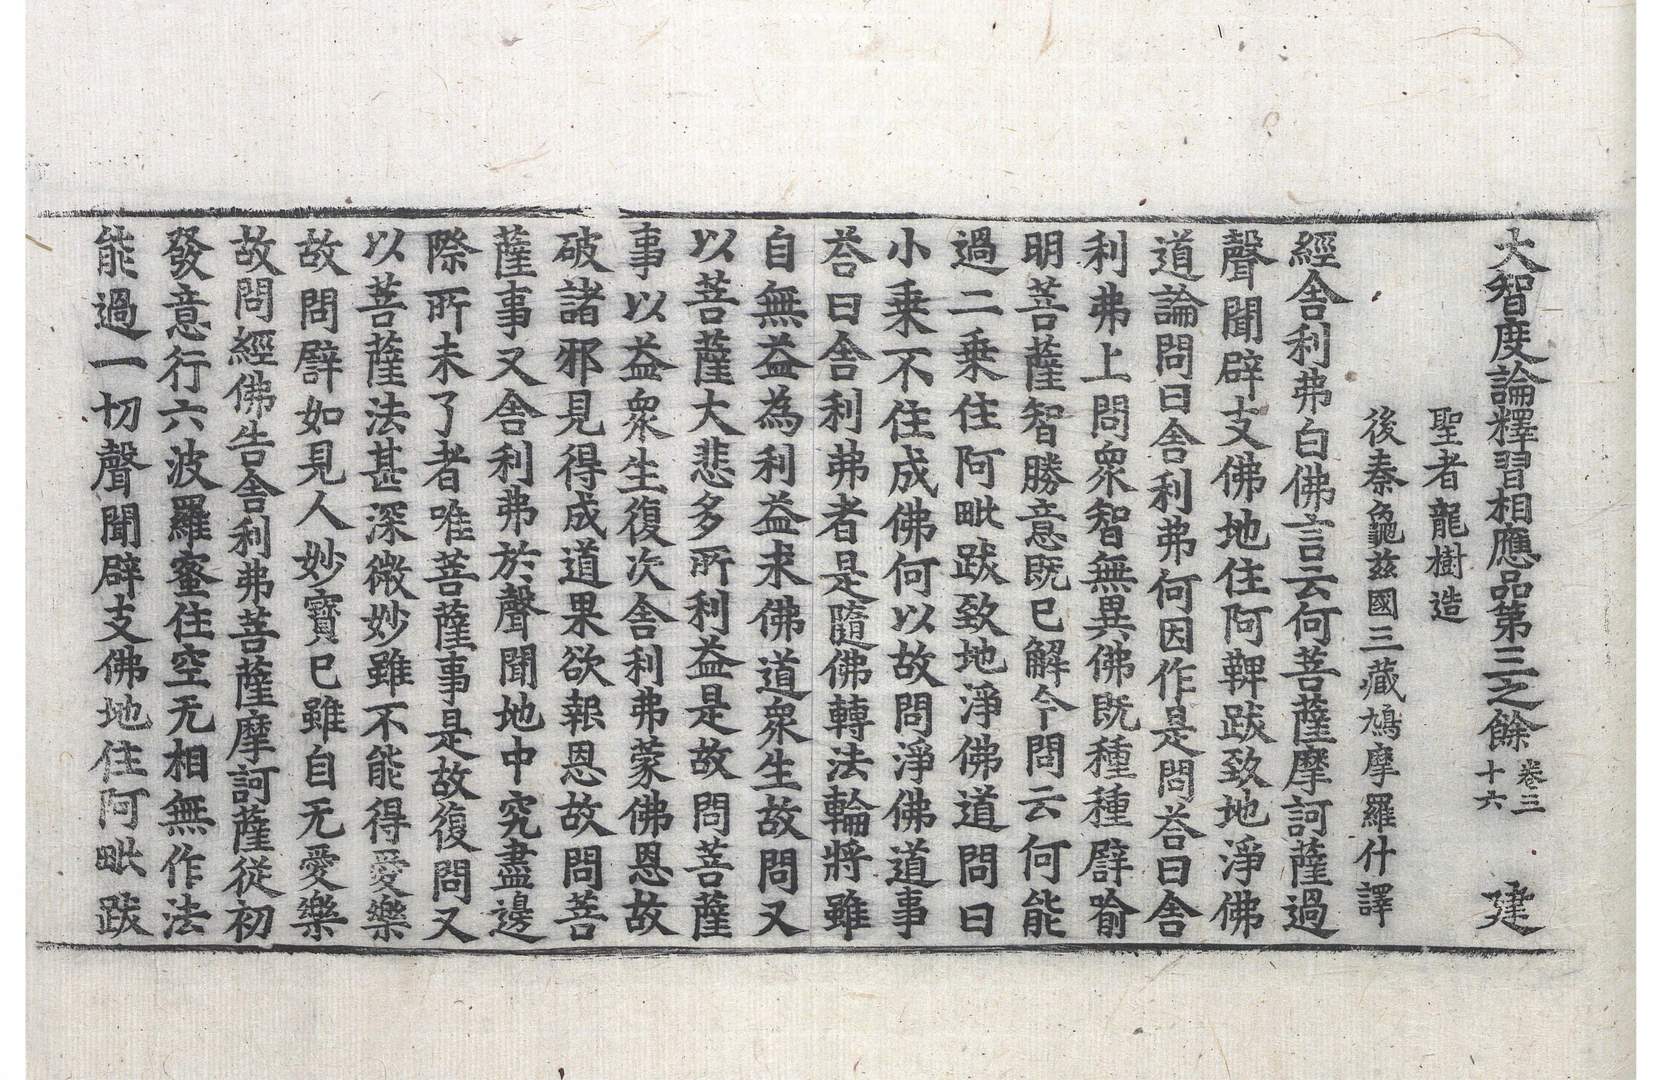 大智度論釋習相應品第三之餘 卷三十六 建
聖者龍樹造
後秦龜茲國三藏鳩摩羅什譯
經舍利弗白佛言云何菩薩摩訶薩過
聲聞辟支佛地住阿鞞跋致地淨佛
道論問曰舍利弗何因作是問荅曰舍
利弗上問衆智無異佛既種種譬喻
明菩薩智勝意既已解今問云何能
過二乗住阿毗跋致地淨佛道問曰
小乗不住成佛何以故問淨佛道事
荅曰舍利弗者是隨佛轉法輪將雖
自無益為利益求佛道衆生故問又
以菩薩大悲多所利益是故問菩薩
事以益衆生復次舍利弗蒙佛恩故
破諸邪見得成道果欲報恩故問菩
薩事又舍利弗於聲聞地中究盡邊
際所未了者唯菩薩事是故復問又
以菩薩法甚深微妙雖不能得愛樂
故問譬如見人妙寳已雖自无愛樂
故問經佛告舍利弗菩薩摩訶薩從初
發意行六波羅蜜住空无相無作法
能過一切聲聞辟支佛地住阿毗跋